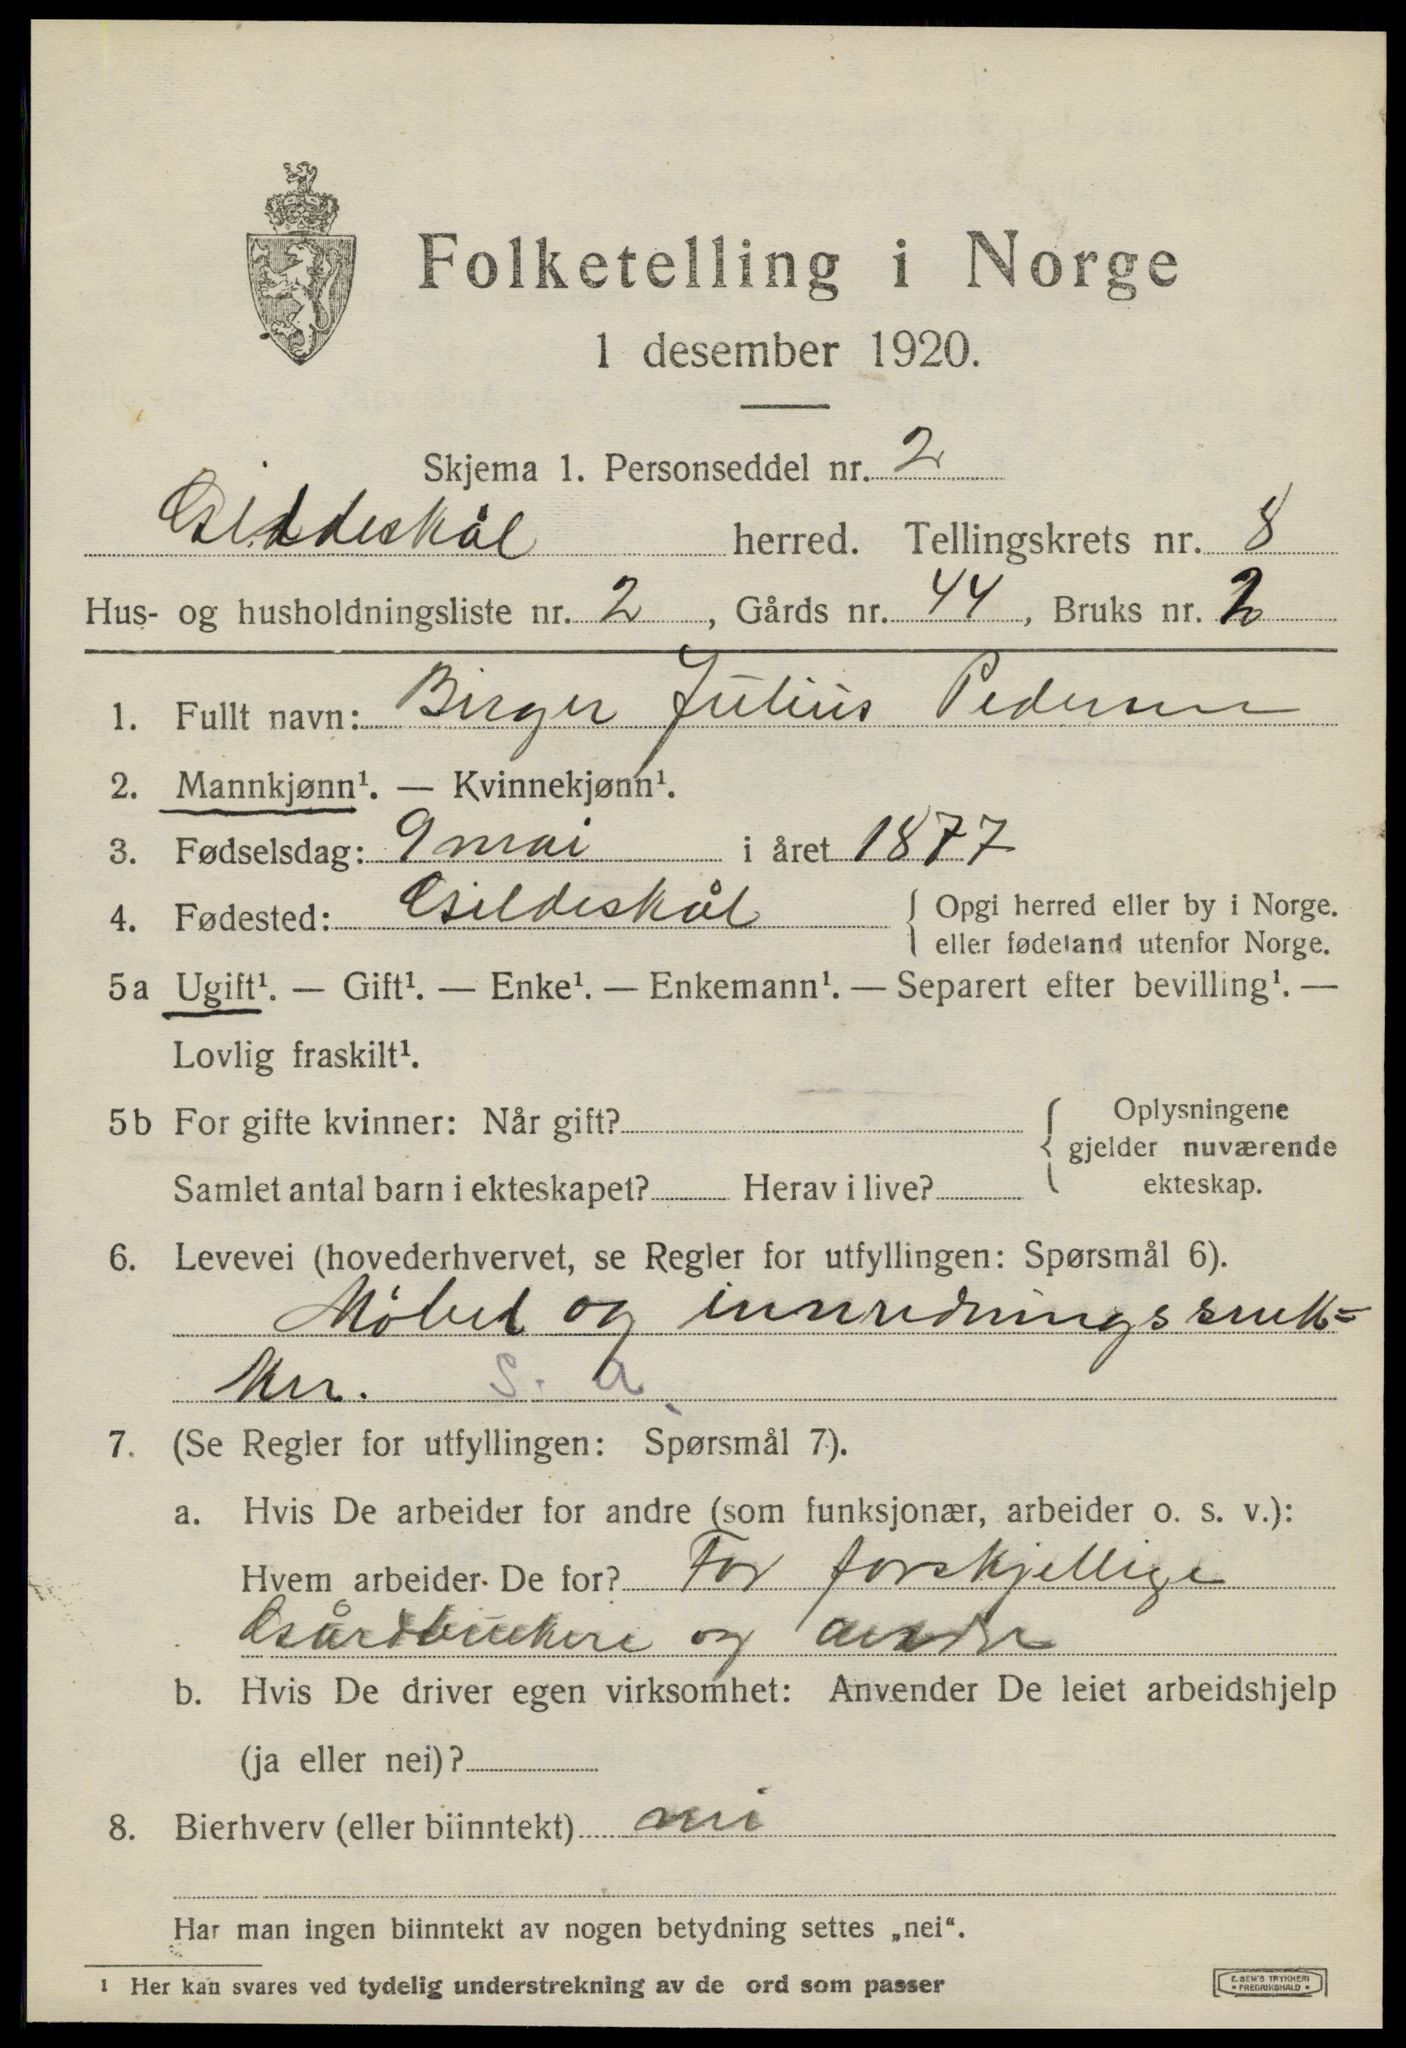 Folketelling i Norge
1 desember 1920.
Skjema 1. Personseddel nr. 2
Gildeskål herred. Tellingskrets nr. 8
Hus- og husholdningsliste nr. 2, Gårds nr. 44, Bruks nr. 2
1. Fullt navn: Birger Julius Pedersen
2. Mannkjønn¹. — Kvinnekjønn¹.
3. Fødselsdag: 9 mai i året 1877
4. Fødested: Gildeskål { Opgi herred eller by i Norge.
eller fødeland utenfor Norge.
5a Ugift¹. — Gift¹. — Enke¹. — Enkemann¹. — Separert efter bevilling¹. —
Lovlig fraskilt¹.
5b For gifte kvinner: Når gift? { Oplysningene
gjelder nuværende
Samlet antal barn i ekteskapet? Herav i live? ekteskap.
6. Levevei (hovederhvervet, se Regler for utfyllingen: Spørsmål 6).
Møbel og innrednings snek=
ker. S. a
7. (Se Regler for utfyllingen: Spørsmål 7).
a. Hvis De arbeider for andre (som funksjonær, arbeider o. s. v.):
Hvem arbeider De for? For forskjellige
Gårdbrukere og andre
b. Hvis De driver egen virksomhet: Anvender De leiet arbeidshjelp
(ja eller nei)?
8. Bierhverv (eller biinntekt) nei
Har man ingen biinntekt av nogen betydning settes „nei“.
1 Her kan svares ved tydelig understrekning av de ord som passer
E. SEM'S TRYKKERI
• FREDRIKSHALD •